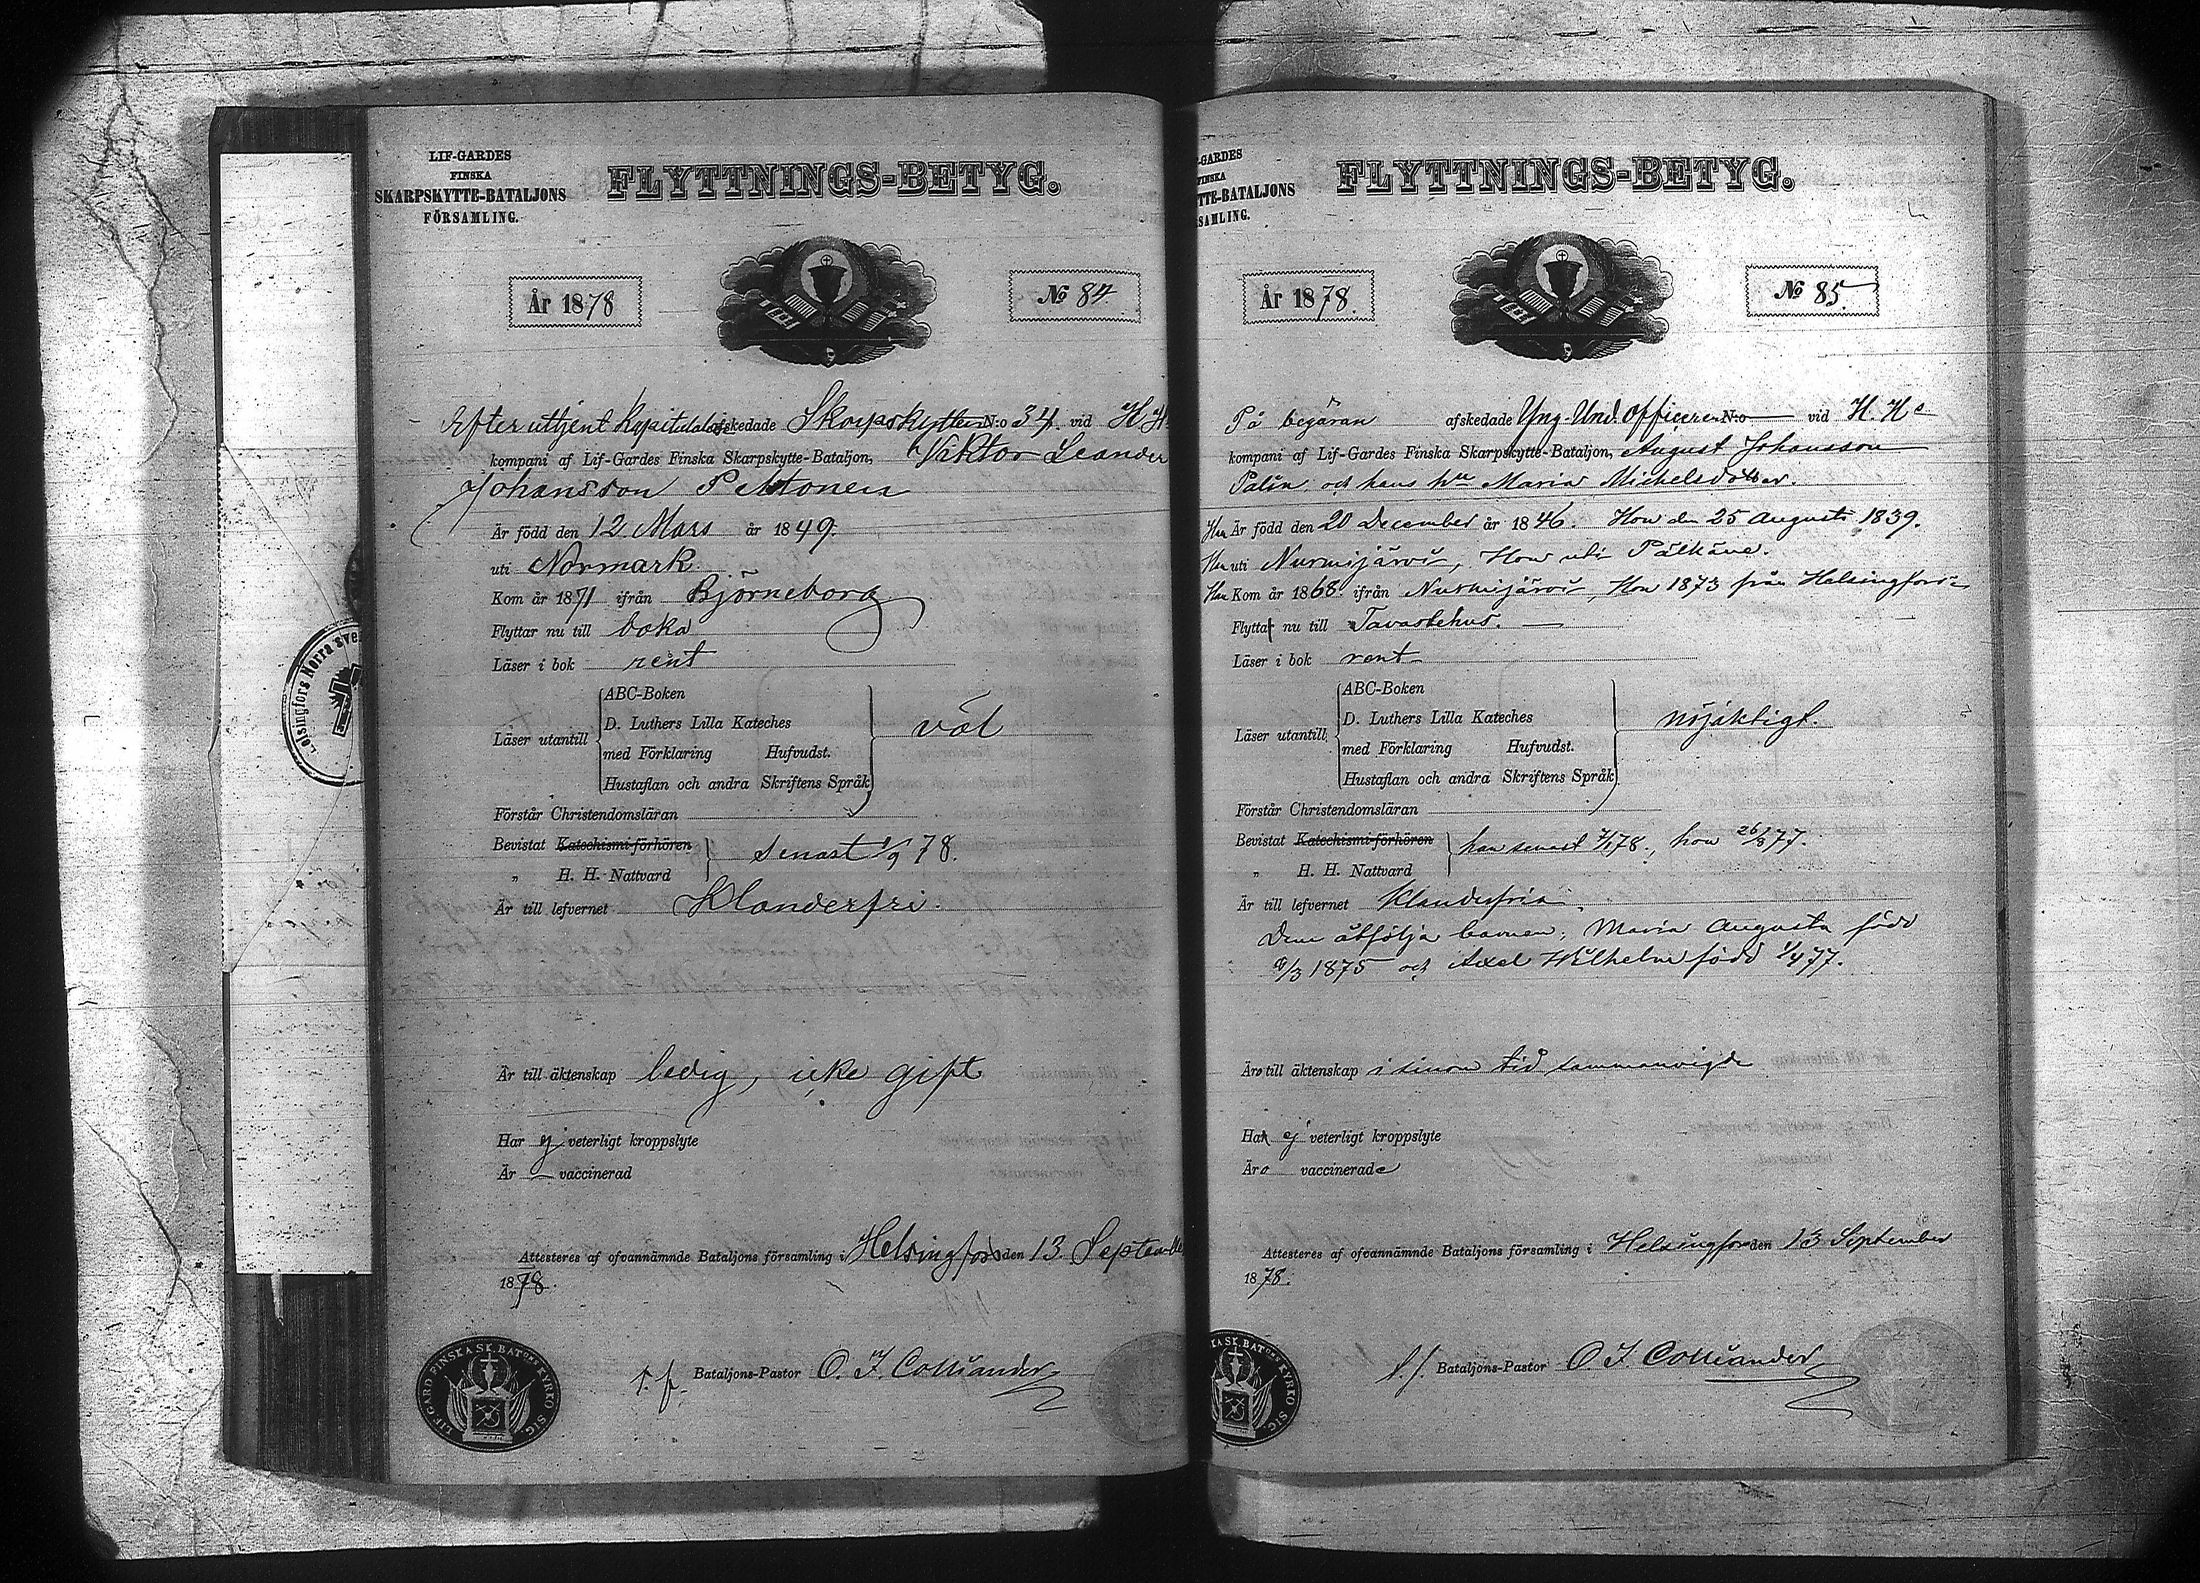 LIF-GARDES
FINSKA
SKARPSKYTTE-BATALJONS
FÖRSAMLING.
FLYTTNINGS-BETYG.
År 1878
No 84
Efter uttjent Kapitulat afskedade Skarpskytten N:o 34 vid
kompani af Lif-Gardes Finska Skarpskytte-Bataljon, Viktor Leander
Johansson
Är född den 12 Mars år 1849.
uti Norrmark
Kom år 1871 ifrån Björneborg
Flyttar nu till
Läser i bok rent
ABC-Boken
D. Luthers Lilla Kateches
Läser utantill
med Förklaring Hufvudst.
väl
Hustaflan och andra Skriftens Språk
Förstår Christendomsläran
Bevistat Katechismi-förhören
senast 1/9 78.
„ H. H. Nattvard
Är till lefvernet Klanderfri.
Är till äktenskap ledig, icke gift
Har ej veterligt kroppslyte
Är — vaccinerad
Attesteres af ofvannämnde Bataljons församling i Helsingfors den 13 Septembe
1878.
t. f. Bataljons-Pastor O. I. Colliander
LIF. GARD. FINSKA SK. BAT:ONS KYRKO SIG.
Helsingfors Norra sve
-GARDES
FINSKA
TTE-BATALJONS
SAMLING.
FLYTTNINGS-BETYG.
År 1878.
No 85.
På begäran afskedade Yng. Und.officeren N:o — vid H. Hs
kompani af Lif-Gardes Finska Skarpskytte-Bataljon, August Johansson
Palin och hans hu Maria Michelsdotter.
Han Är född den 20 December år 1846. Hon den 25 Augusti 1839.
Han uti Nurmijärvi, Hon uti Pälkäne.
Han Kom år 1868 ifrån Nurmijärvi, Hon 1873 från Helsingfors
Flytta nu till Tavastehus. —
Läser i bok rent
ABC-Boken
D. Luthers Lilla Kateches
Läser utantill
med Förklaring Hufvudst.
nöjaktigt.
Hustaflan och andra Skriftens Språk
Förstår Christendomsläran
Bevistat Katechismi-förhören
han senast 7/1 78., hon 26/8 77.
„ H. H. Nattvard
Är till lefvernet Klanderfria.
Dem åtfölja barnen: Maria Augusta född
9/3 1875 och Axel Wilhelm född 1/4 77.
Äro till äktenskap i sinom tid sammanvigde
Ha ej veterligt kroppslyte
Äro vaccinerade
Attesteres af ofvannämnde Bataljons församling i Helsingfors den 13 September
1878.
t. f. Bataljons-Pastor O I Colliander
KA SK. BAT:ONS KYRKO SIG.